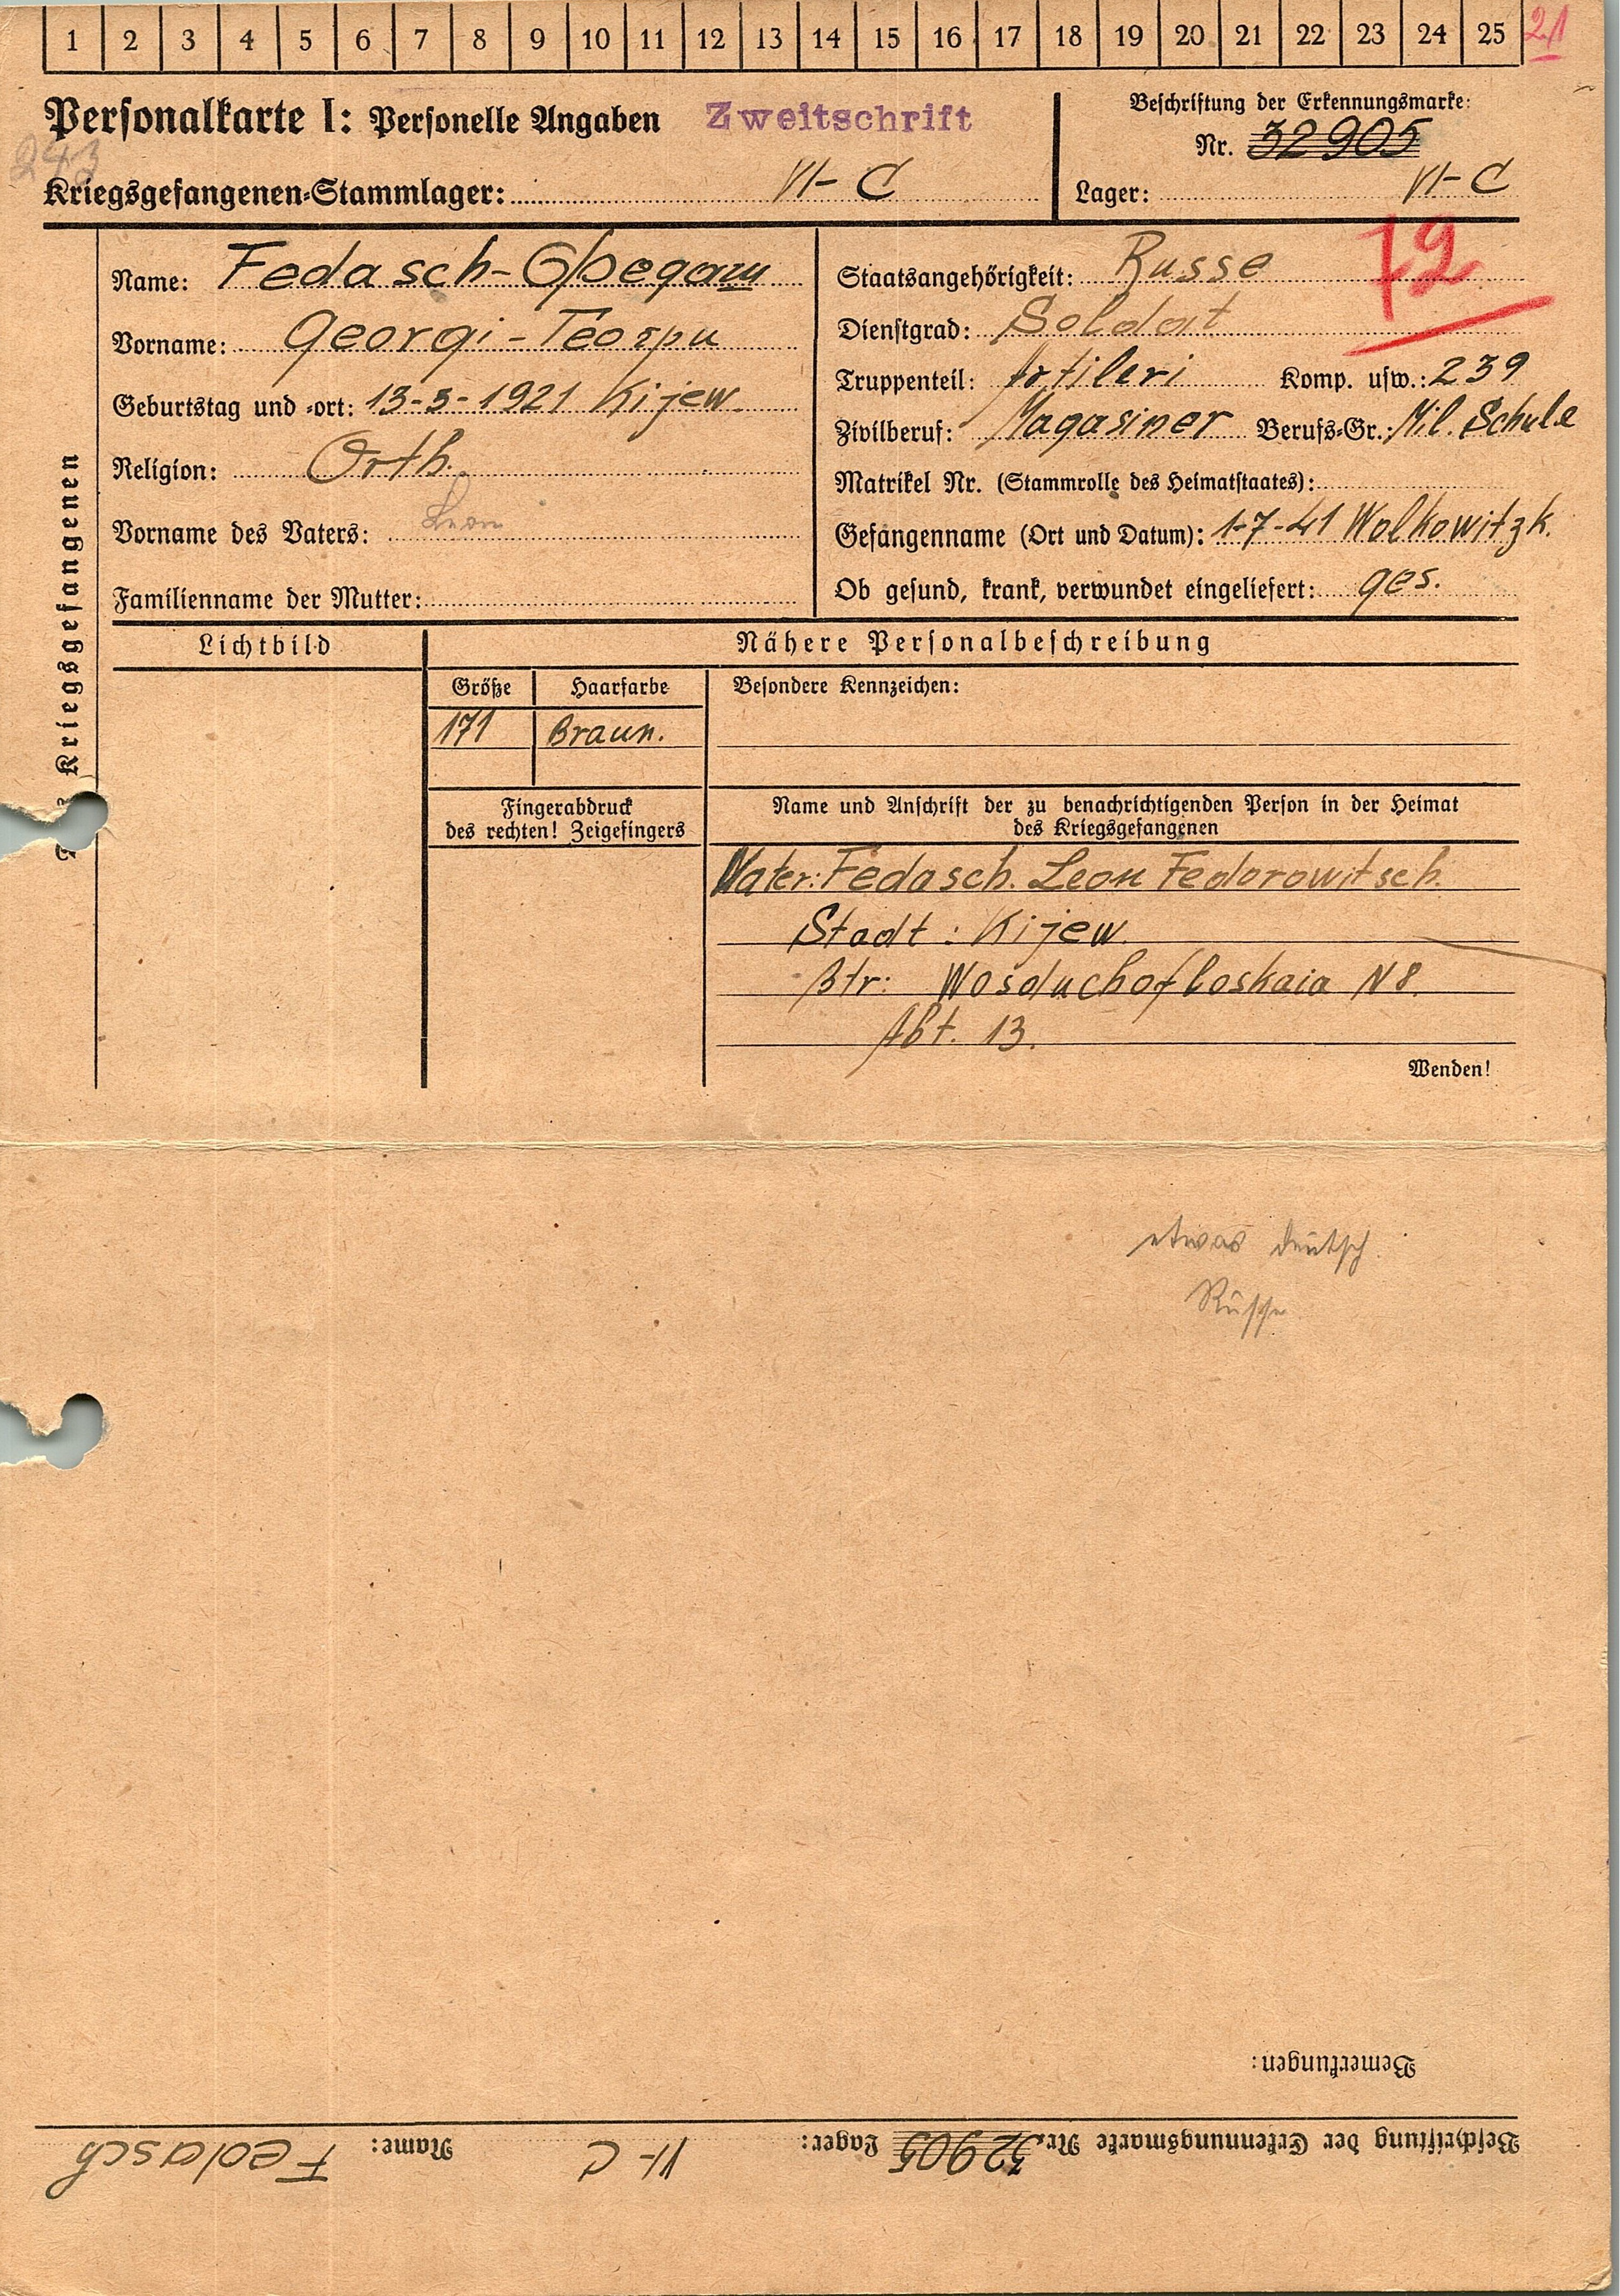 1 2 3 4 5 6 7 8 9 10 11 12 13 14 15 16 17 18 19 20 21 22 23 24 25 21
Personalkarte I: Personelle Angaben Zweitschrift
Beschriftung der Erkennungsmarke:
Nr. 32905
Kriegsgefangenen-Stammlager: VI-C
Lager: VI-C
72
Kriegsgefangenen
Name: Fedasch-Федаш
Vorname: Georgi-Георги
Geburtstag und -ort: 13-3-1921 Kijew
Religion: Orth.
Vorname des Vaters: Leon
Familienname der Mutter:
Staatsangehörigkeit: Russe
Dienstgrad: Soldat
Truppenteil: Artileri Komp. usw.: 239
Zivilberuf: Magasiner Berufs-Gr.: Mil. Schule
Matrikel Nr. (Stammrolle des Heimatstaates):
Gefangenname (Ort und Datum): 1-7-41 Wolkowitzk.
Ob gesund, krank, verwundet eingeliefert: ges.
Lichtbild
Nähere Personalbeschreibung
Größe Haarfarbe Besondere Kennzeichen:
171 Braun.
Fingerabdruck
des rechten! Zeigefingers
Name und Anschrift der zu benachrichtigenden Person in der Heimat
des Kriegsgefangenen
Vater: Fedasch. Leon Fedorowitsch.
Stadt: Kijew.
Str: Wosduchofloskaia N 8.
Abt. 13.
Wenden!
etwas deutsch.
Russe
Bemerkungen:
Beschriftung der Erkennungsmarke Nr. 32905 Lager: VI-C Name: Fedasch